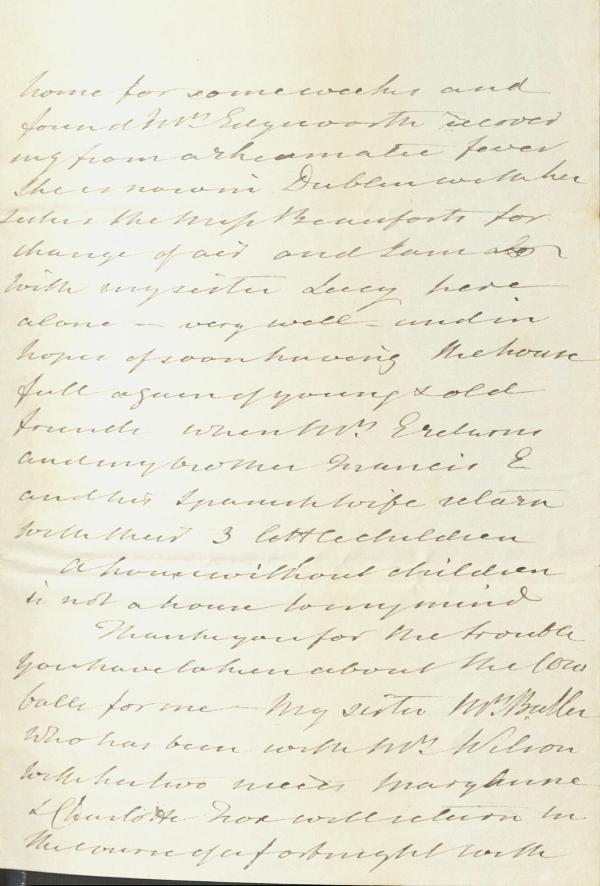 home for some weeks and
found Mrs Edgeworth recover
ing from a rheumatic fever
She is now in Dublin with her
sisters the Miss Beauforts for
change of air and I am
with my sister Lucy here
alone – very well – and in
hopes of soon having the house
full again of young & old
friends when Mrs E returns
and my brother Francis E
and his Spanish wife return
with their 3 little children
A house without children
is not a house to my mind
Thank you for the trouble
you have taken about the cow
balls for me – My sister Mrs Butler
who has been with Mrs Wilson
with her two nieces Maryanne
& Charlotte Fox will return in
the course of a fortnight with